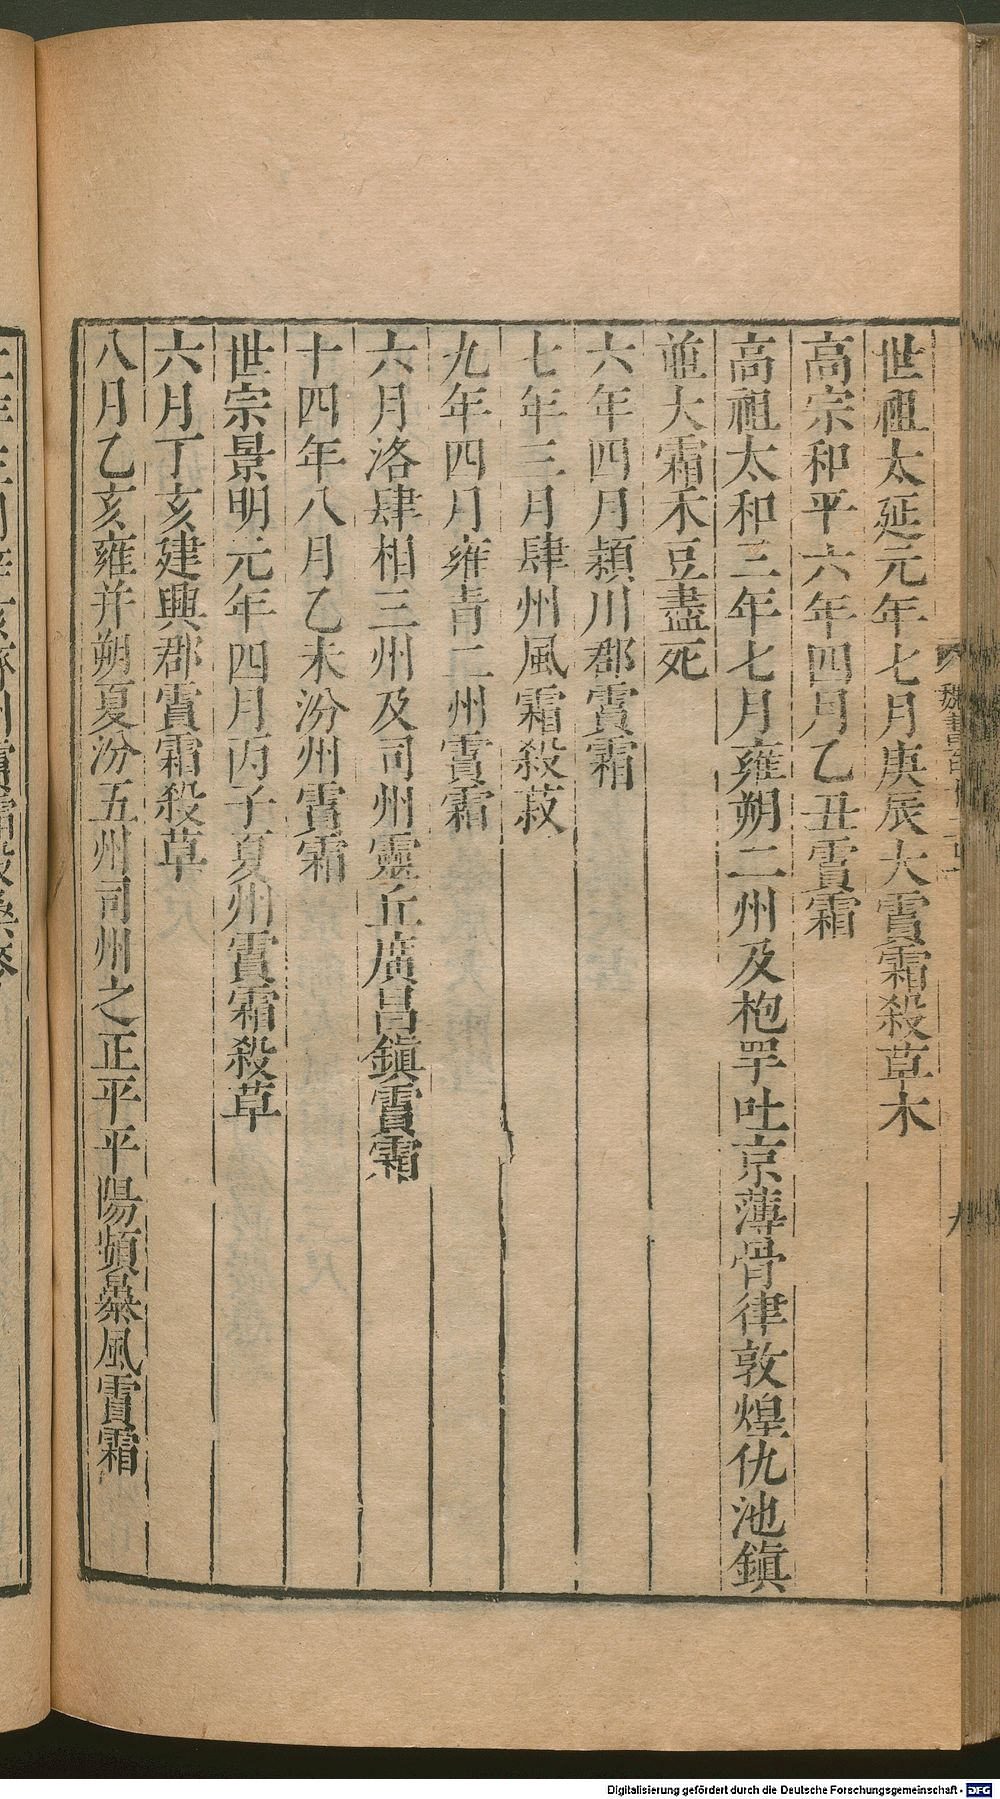 世祖太延元年七月庚辰大霣霜殺草木
高宗和平六年四月乙丑霣霜
高祖太和三年七月雍朔二州及枹罕吐京薄骨律敦煌仇池鎮
並大霜禾豆盡死
六年四月潁川郡霣霜
七年三月肆州風霜殺菽
九年四月雍青二州霣霜
六月洛肆相三州及司州靈丘廣昌鎮霣霜
十四年八月乙未汾州霣霜
世宗景明元年四月丙子夏州霣霜殺草
六月丁亥建興郡霣霜殺草
八月乙亥雍并朔夏汾五州司州之正平平陽頻暴風霣霜
Digitalisierung gefördert durch die Deutsche Forschungsgemeinschaft - DFG